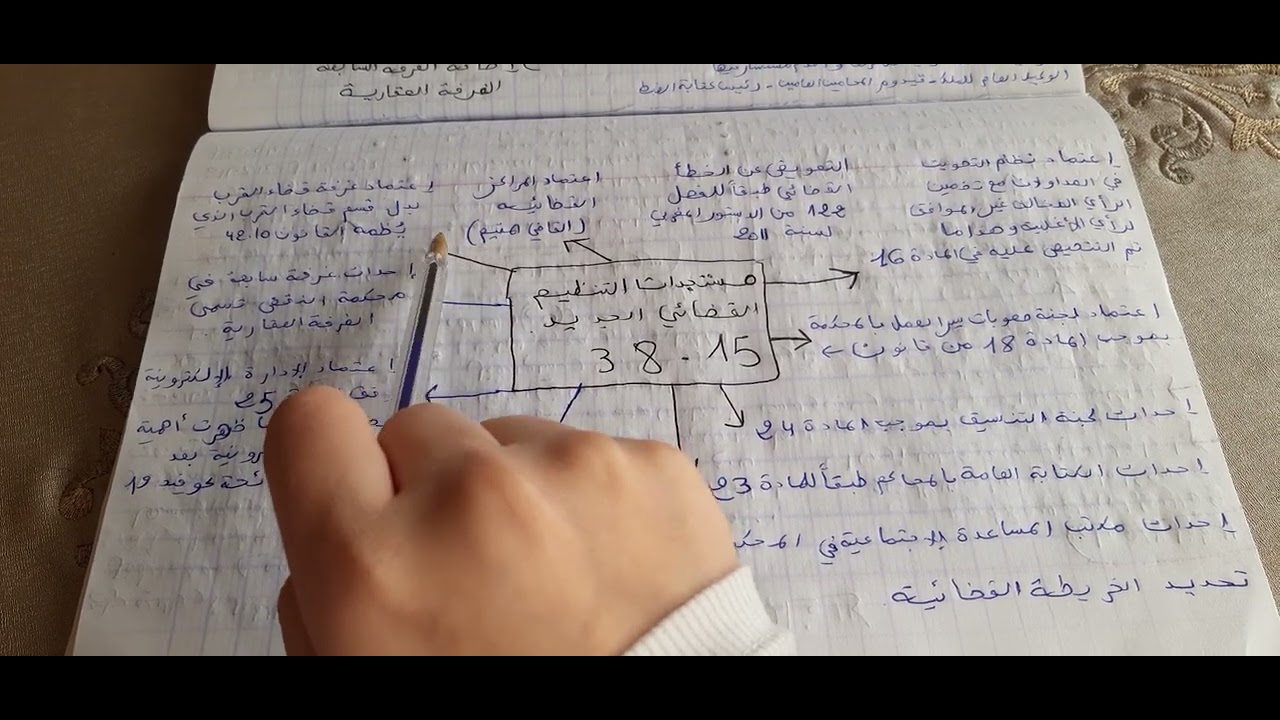 الغرفة العقارية
الوكيل العام للملك - قيدوم المحامين العامين - رئيس كتابة الضبط
إعتماد نظام التصويت
في المداولات مع تضمين
الرأي المخالف غير الموافق
لرأي الأغلبية وهذا ما
تم التنصيص عليه في المادة 16
التعويض عن الخطأ
القضائي طبقاً للفصل
122 من الدستور المغربي
لسنة 2011
اعتماد المراكز
القضائية
(القاضي المقيم)
إعتماد غرفة قضاء القرب
بدل قسم قضاء القرب الذي
ينظمه القانون 42.10
مستجدات التنظيم
القضائي الجديد
38.15
إحداث غرفة سابعة في
محكمة النقض تسمى
الغرفة العقارية
إعتماد لجنة صعوبات سير العمل بالمحكمة
بموجب المادة 18 من قانون
إعتماد الإدارة الإلكترونية
25
ظهرت أهمية
بعد
كوفيد 19
إحداث لجنة التنسيق بموجب المادة 24
إحداث الكتابة العامة بالمحاكم طبقاً للمادة 23
إحداث مكتب المساعدة الإجتماعية في
تحديد الخريطة القضائية